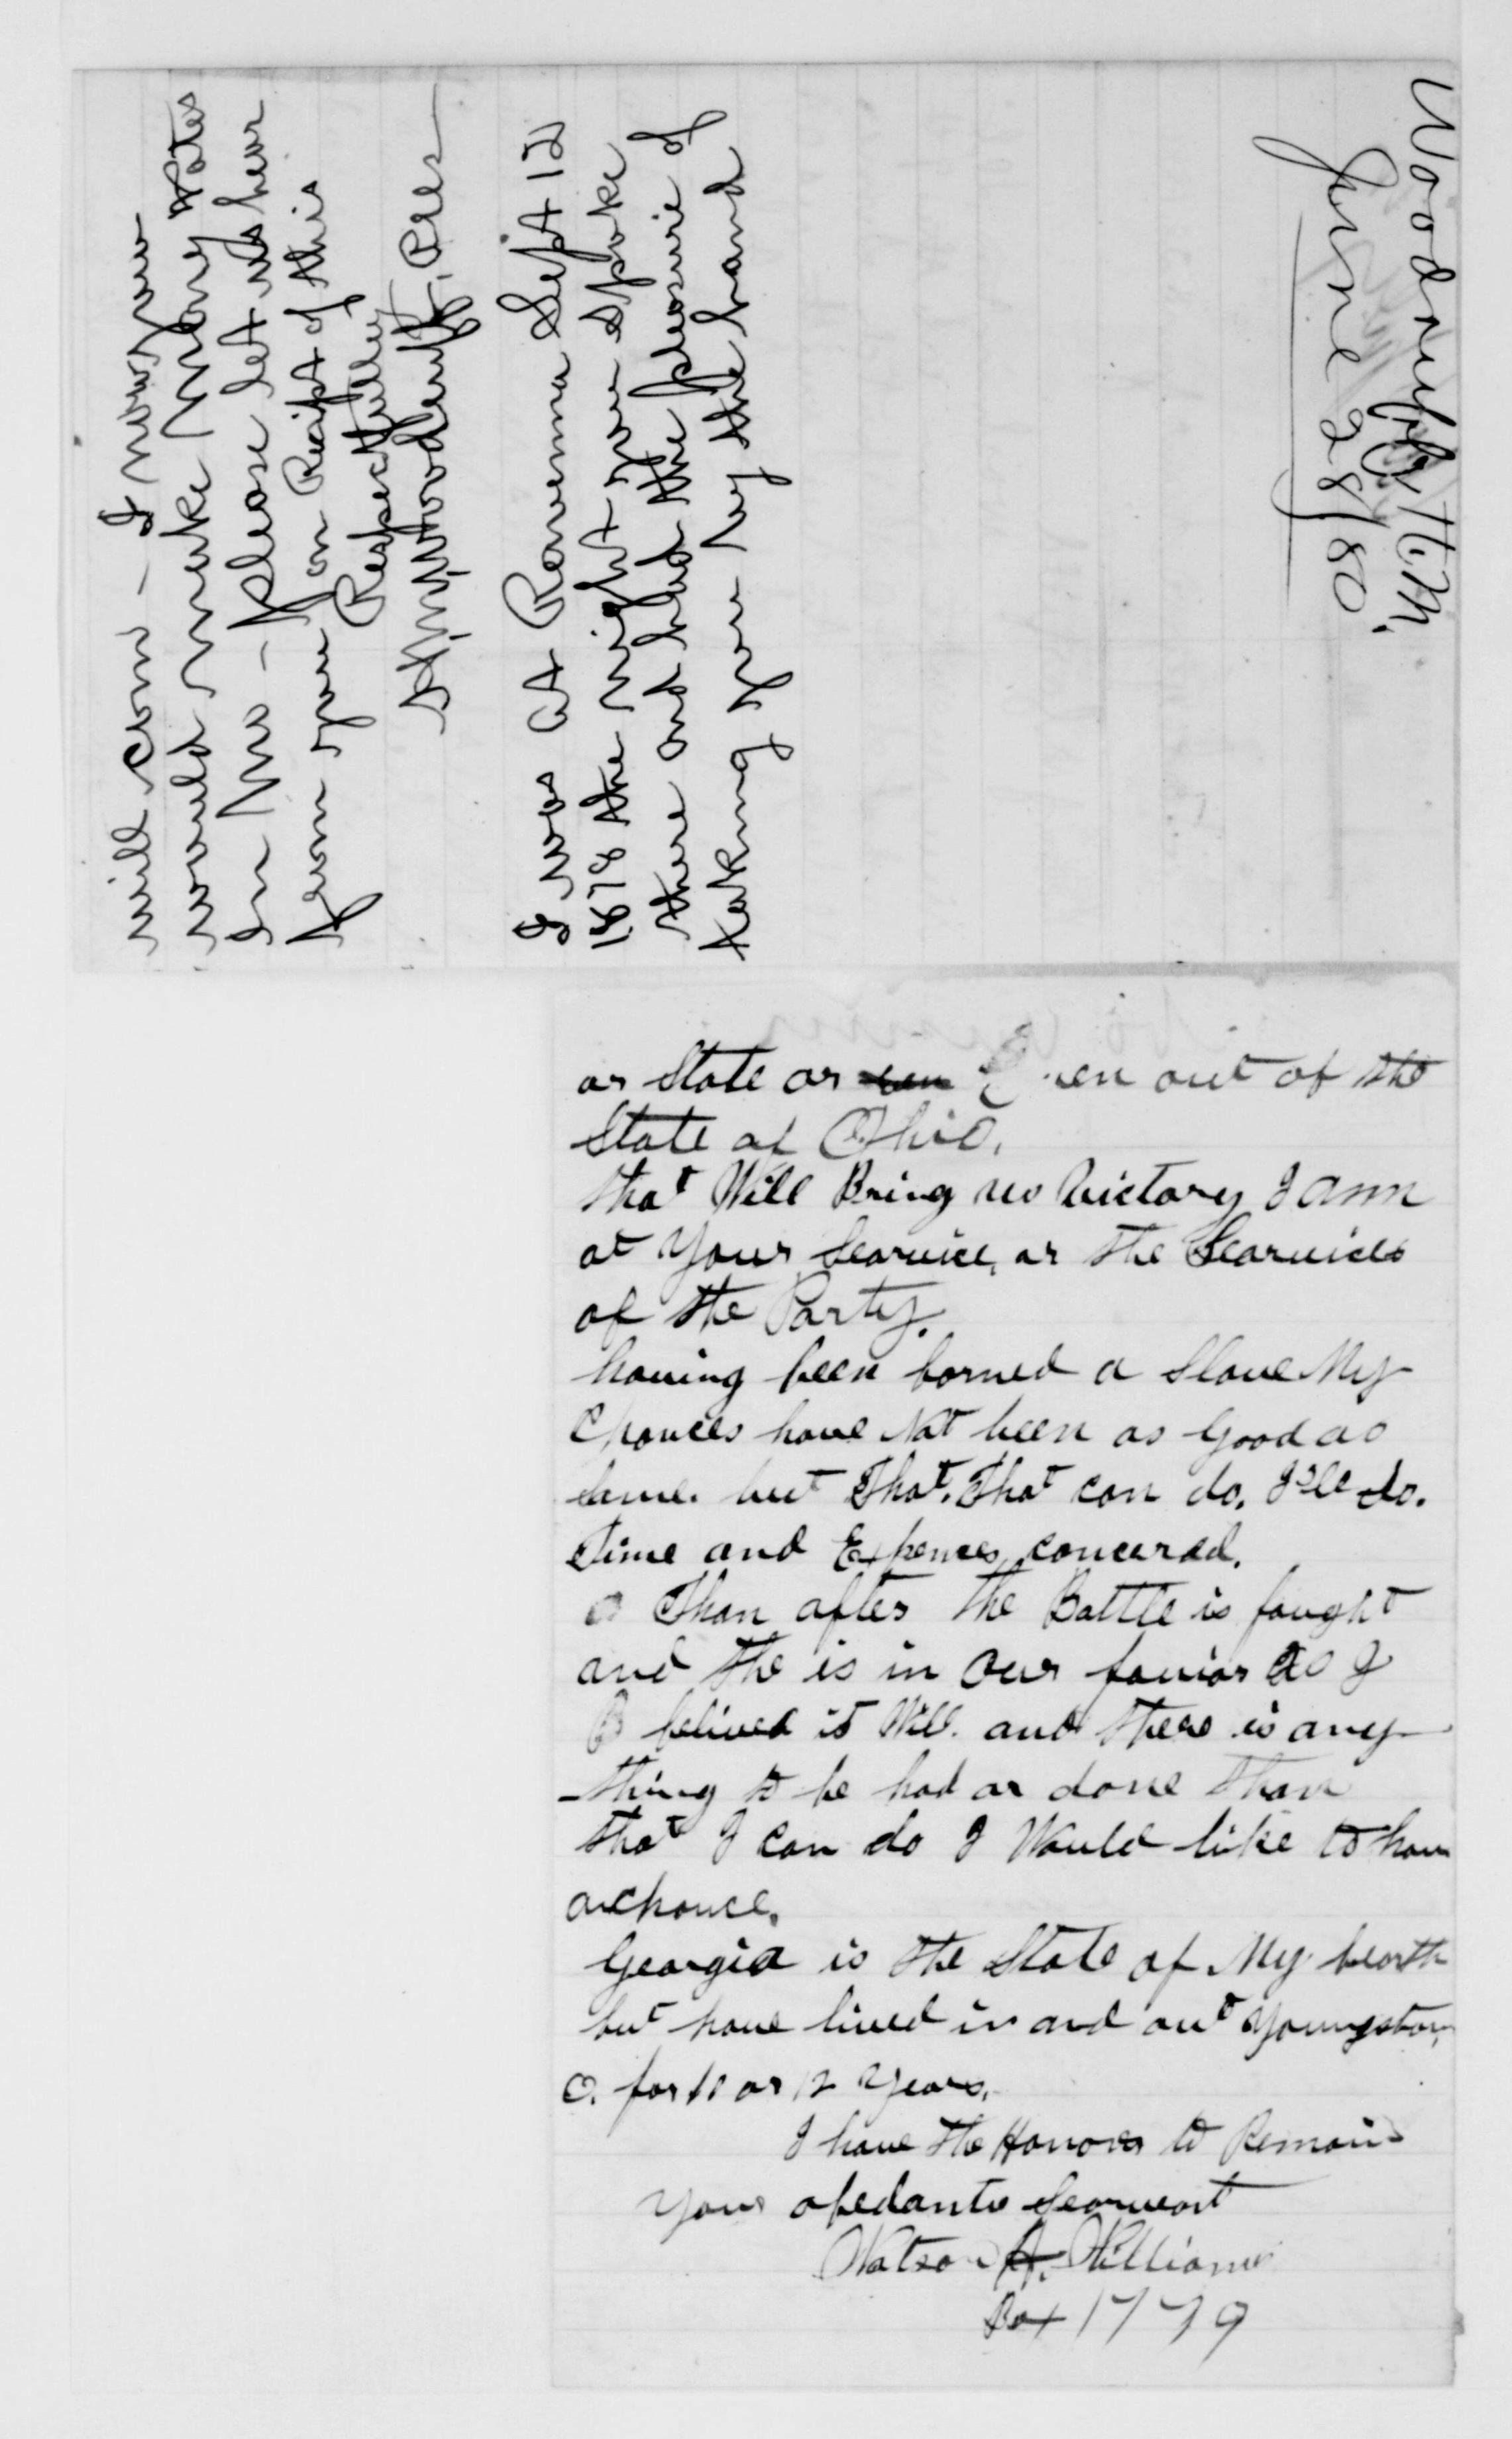 will Com — I know you
would make Many Votes
In No — please let us hear
from you on Recipt of this
Respectfully
H M Woodruff, Pres
I was at Ravenna Sept 12
1878 the night you Spoke
there and had the pleasure of
taking you by the hand
Woodruff, H.M.
June 28/80
or State or Even out of the
State of Ohio.
that Will Bring us Victory I am
at Your Searvice, or the Searvices
of the Party.
having been borned a Slave My
Chances have Not been as Good as
Some. but That. That can do. I'll do.
Time and Expences concerad.
Than after the Battle is fought
and the is in our favior as I
belived it Will. and there is any
thing to be had or done than
that I can do I Would like to have
a chance.
Georgia is the State of My bearth
but have lived in and out Youngstown,
O. for 10 or 12 Years.
I have the Honor to Remain
Your obedants Searveant
Watson A. Williams
Box 1779